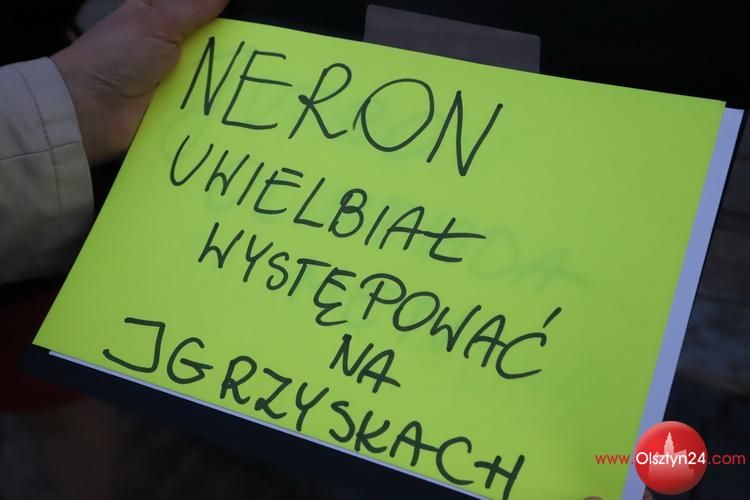 NERON
UWIELBIAŁ
WYSTĘPOWAĆ
NA
JGRZYSKACH
www.Olsztyn24.com